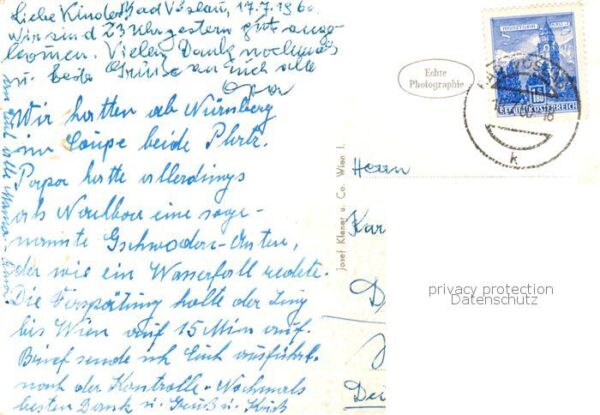 Liebe Kinder! Bad Vöslau, 17.7.1960.
Wir sind 23 Uhr gestern gut ange-
kommen. Vielen Dank nochmals
u. beste Grüße an Euch alle
Opa
Wir hatten ab Nürnberg
im Coupe beide Platz.
Papa hatte allerdings
als Nachbar eine soge-
nannte
der wie ein Wasserfall redete.
Die Verspätung holte der Zug
bis Wien auf 15 Min auf.
Brief sende ich Euch ausführl.
nach der Kontrolle - Nochmals
besten Dank u. Gruß u. Kuß
alle Mama
Echte
Photographie
REPUBLIK ÖSTERREICH
k
Josef Klaner u. Co. Wien I.
Herrn
Kar
D
Dei
privacy protection
Datenschutz